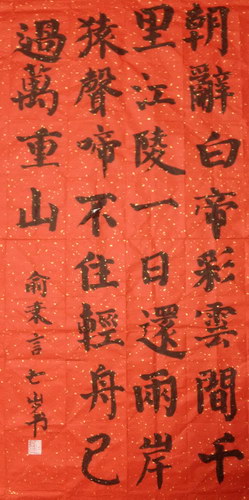 朝辭白帝彩雲間千
里江陵一日還兩岸
猿聲啼不住輕舟已
過萬重山
俞秉言七岁书